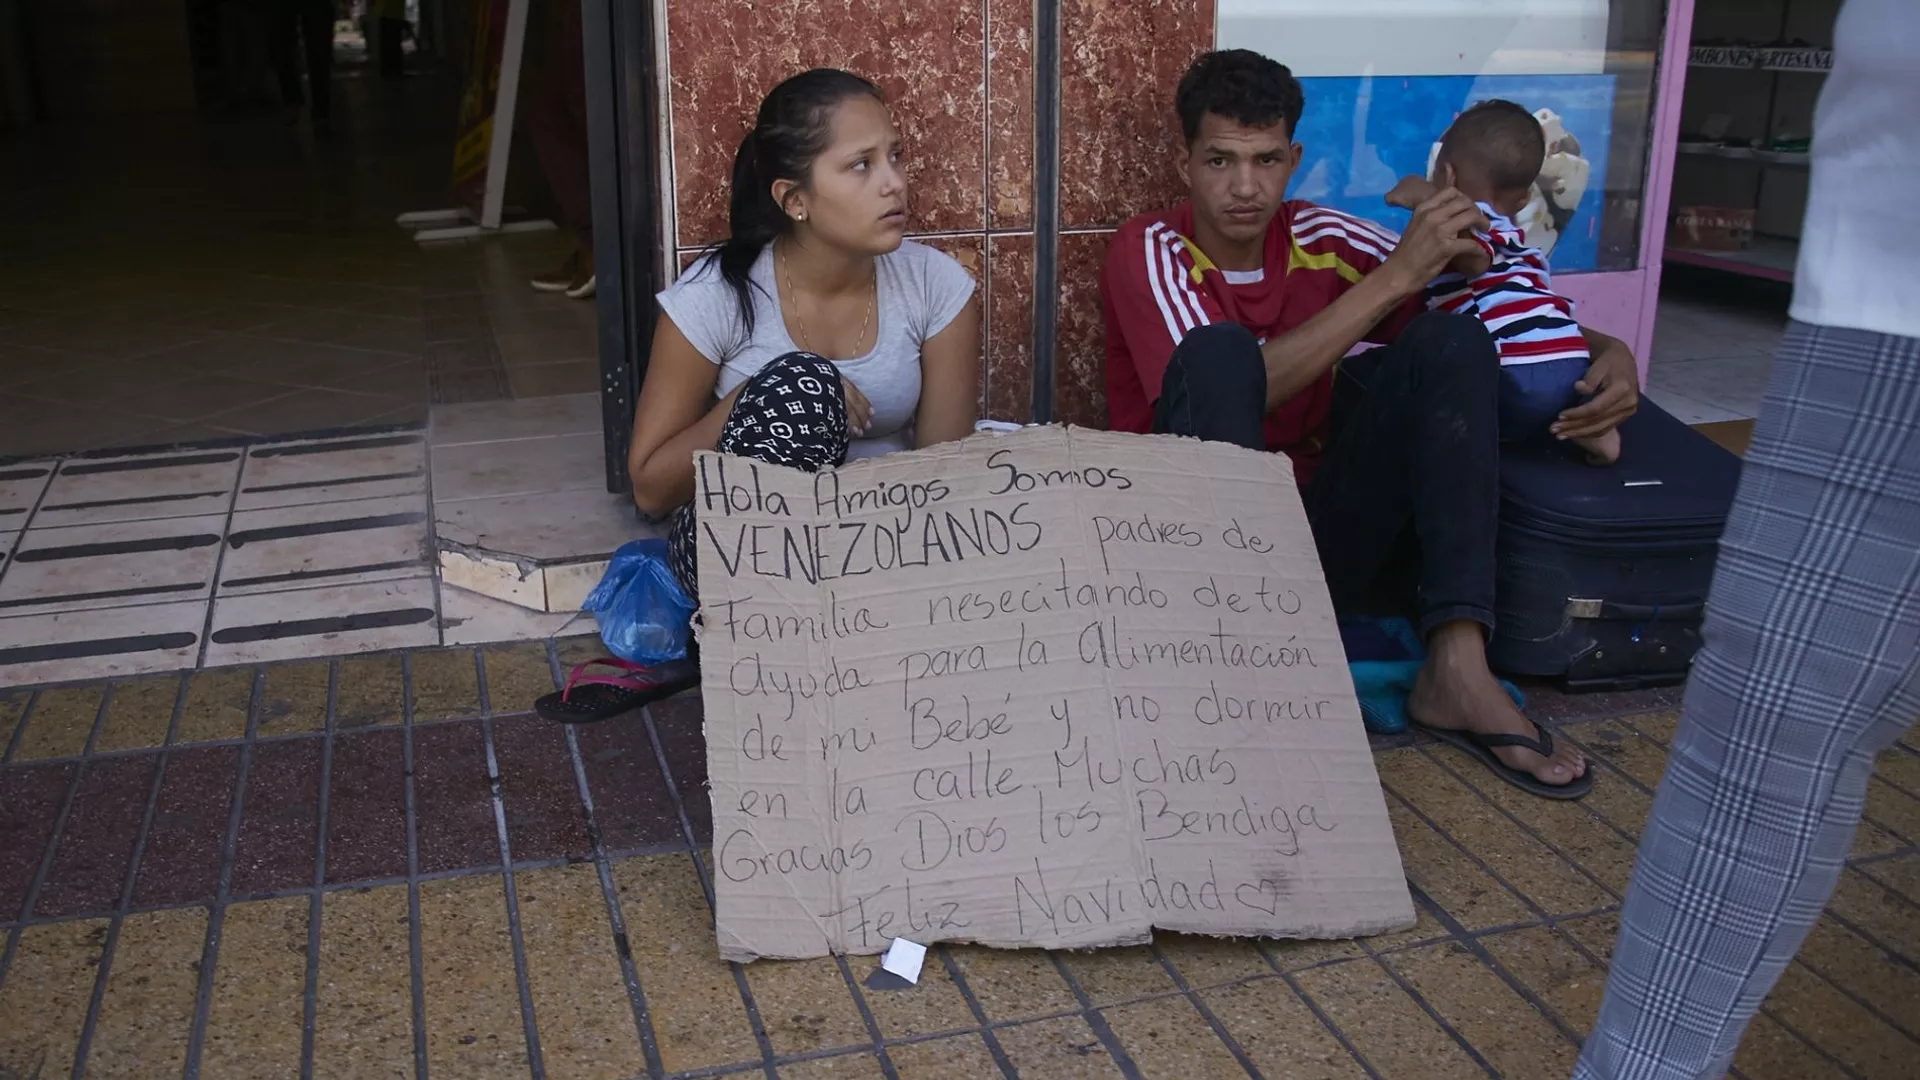 Hola Amigos Somos
VENEZOLANOS padres de
Familia nesecitando de tu
Ayuda para la Alimentación
de mi Bebé y no dormir
en la calle. Muchas
Gracias Dios los Bendiga
Feliz Navidad